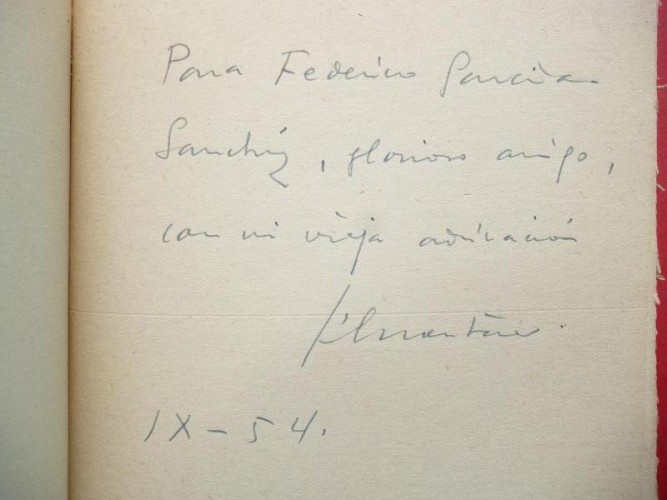 Para Federico García
Sanchiz, glorioso amigo,
con mi vieja admiración
IX-54.